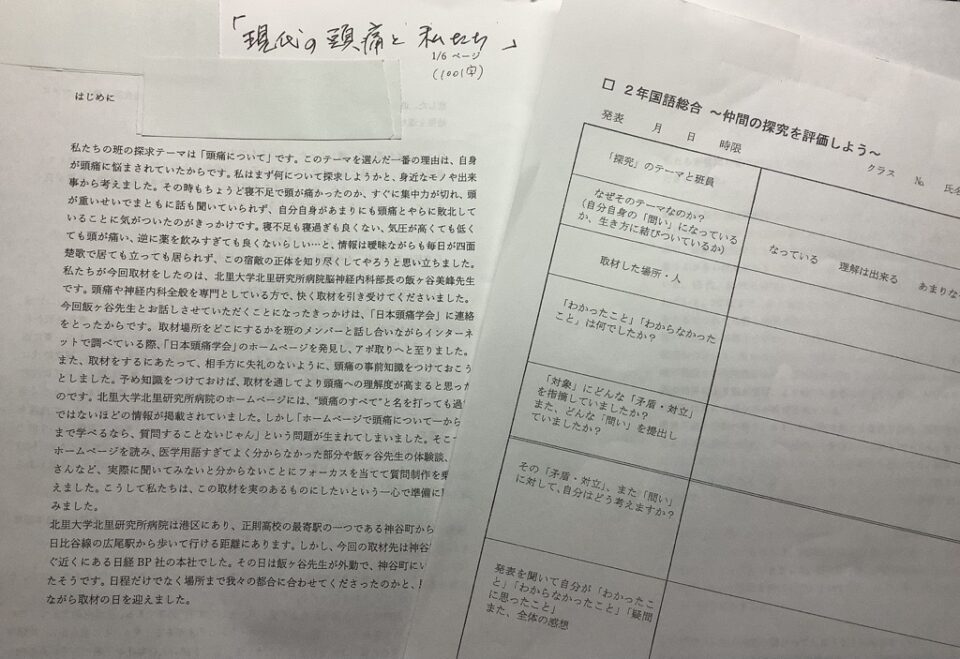 「現代の頭痛と私たち」
1/6 ページ
(1001字)
はじめに
私たちの班の探求テーマは「頭痛について」です。このテーマを選んだ一番の理由は、自身
が頭痛に悩まされていたからです。私はまず何について探求しようかと、身近なモノや出来
事から考えました。その時もちょうど寝不足で頭が痛かったのか、すぐに集中力が切れ、頭
が重いせいでまともに話も聞いていられず、自分自身があまりにも頭痛とやらに敗北して
いることに気がついたのがきっかけです。寝不足も寝過ぎも良くない、気圧が高くても低く
ても頭が痛い、逆に薬を飲みすぎても良くないらしい…と、情報は曖昧ながらも毎日が四面
楚歌で居ても立っても居られず、この宿敵の正体を知り尽くしてやろうと思い立ちました。
私たちが今回取材をしたのは、北里大学北里研究所病院脳神経内科部長の飯ヶ谷美峰先生
です。頭痛や神経内科全般を専門としている方で、快く取材を引き受けてくださいました。
今回飯ヶ谷先生とお話しさせていただくことになったきっかけは、「日本頭痛学会」に連絡
をとったからです。取材場所をどこにするかを班のメンバーと話し合いながらインターネ
ットで調べている際、「日本頭痛学会」のホームページを発見し、アポ取りへと至りました。
また、取材をするにあたって、相手方に失礼のないように、頭痛の事前知識をつけておこう
としました。予め知識をつけておけば、取材を通してより頭痛への理解度が高まると思った
のです。北里大学北里研究所病院のホームページには、“頭痛のすべて”と名を打っても過
ではないほどの情報が掲載されていました。しかし「ホームページで頭痛について一から
まで学べるなら、質問することないじゃん」という問題が生まれてしまいました。そこ
ホームページを読み、医学用語すぎてよく分からなかった部分や飯ヶ谷先生の体験談、
さんなど、実際に聞いてみないと分からないことにフォーカスを当てて質問制作を
えました。こうして私たちは、この取材を実のあるものにしたいという一心で準備に
みました。
北里大学北里研究所病院は港区にあり、正則高校の最寄駅の一つである神谷町から
日比谷線の広尾駅から歩いて行ける距離にあります。しかし、今回の取材先は神谷
ぐ近くにある日経 BP 社の本社でした。その日は飯ヶ谷先生が外勤で、神谷町にい
たそうです。日程だけでなく場所まで我々の都合に合わせてくださったのかと、
ながら取材の日を迎えました。
□ 2年国語総合 ～仲間の探究を評価しよう～
発表 月 日 時限
クラス № 氏名
「探究」のテーマと班員
なぜそのテーマなのか？
(自分自身の「問い」になっている
か、生き方に結びついているか)
なっている 理解は出来る あまりな
取材した場所・人
「わかったこと」「わからなかった
こと」は何でしたか？
「対象」にどんな「矛盾・対立」
を指摘していましたか？
また、どんな「問い」を提出し
ていましたか？
その「矛盾・対立」、また「問い」
に対して、自分はどう考えますか？
発表を聞いて自分が「わかったこ
と」「わからなかったこと」「疑問
に思ったこと」
また、全体の感想